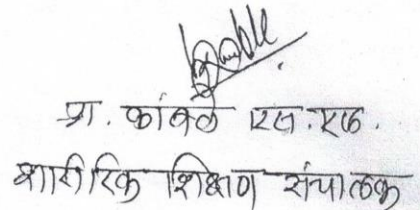 प्रा. कांबळे एस.एल.
शारीरिक शिक्षण संचालक